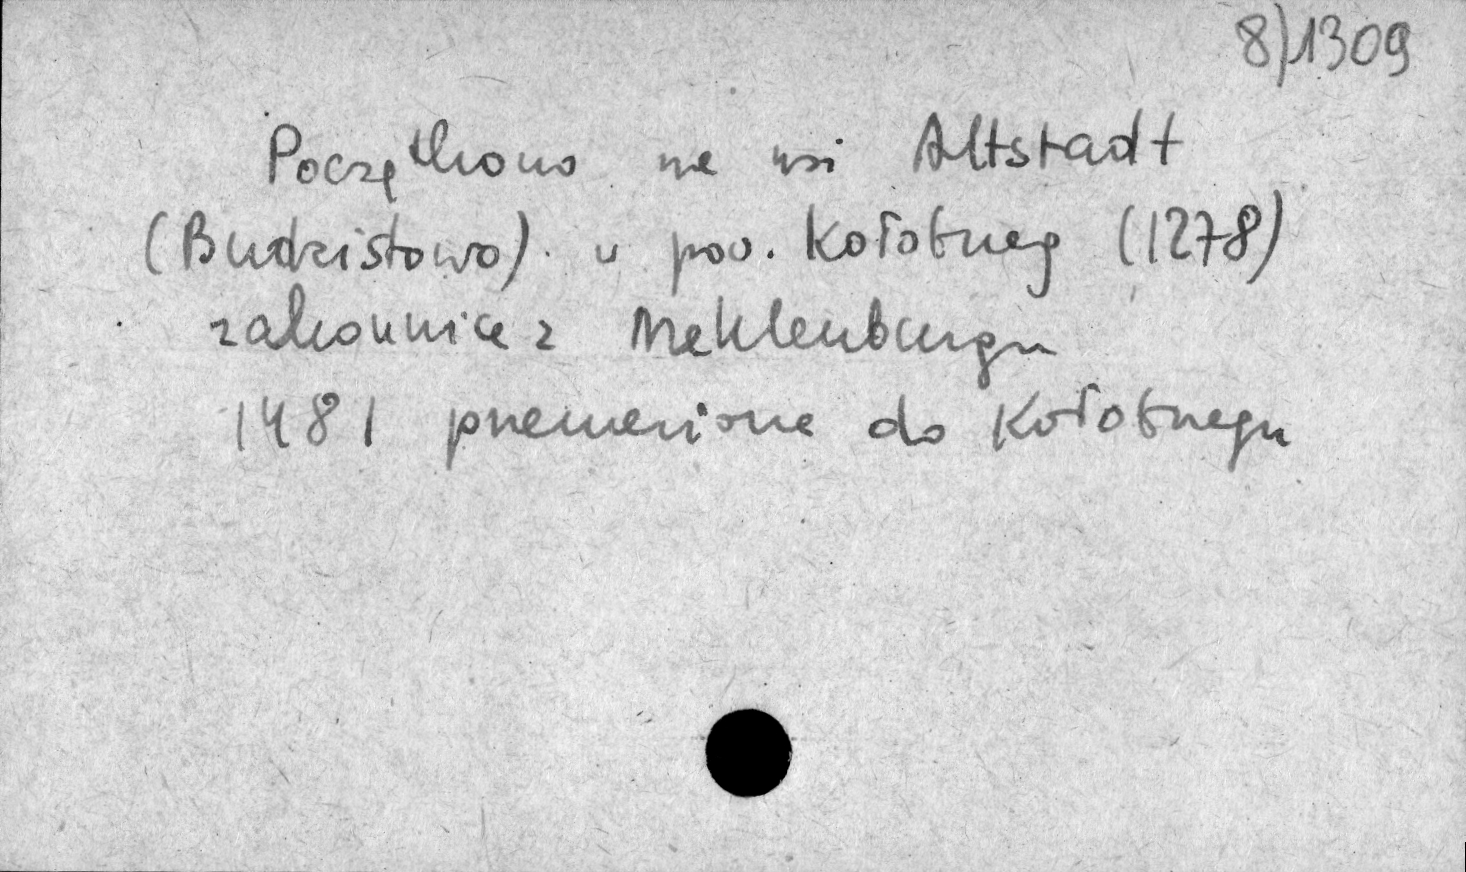 8)1309
Początkowo we wsi Altstadt
(Budzistowo) w pow. Kołobrzeg (1278)
zakonnice z Meklenburgu
1481 przeniesione do Kołobrzegu